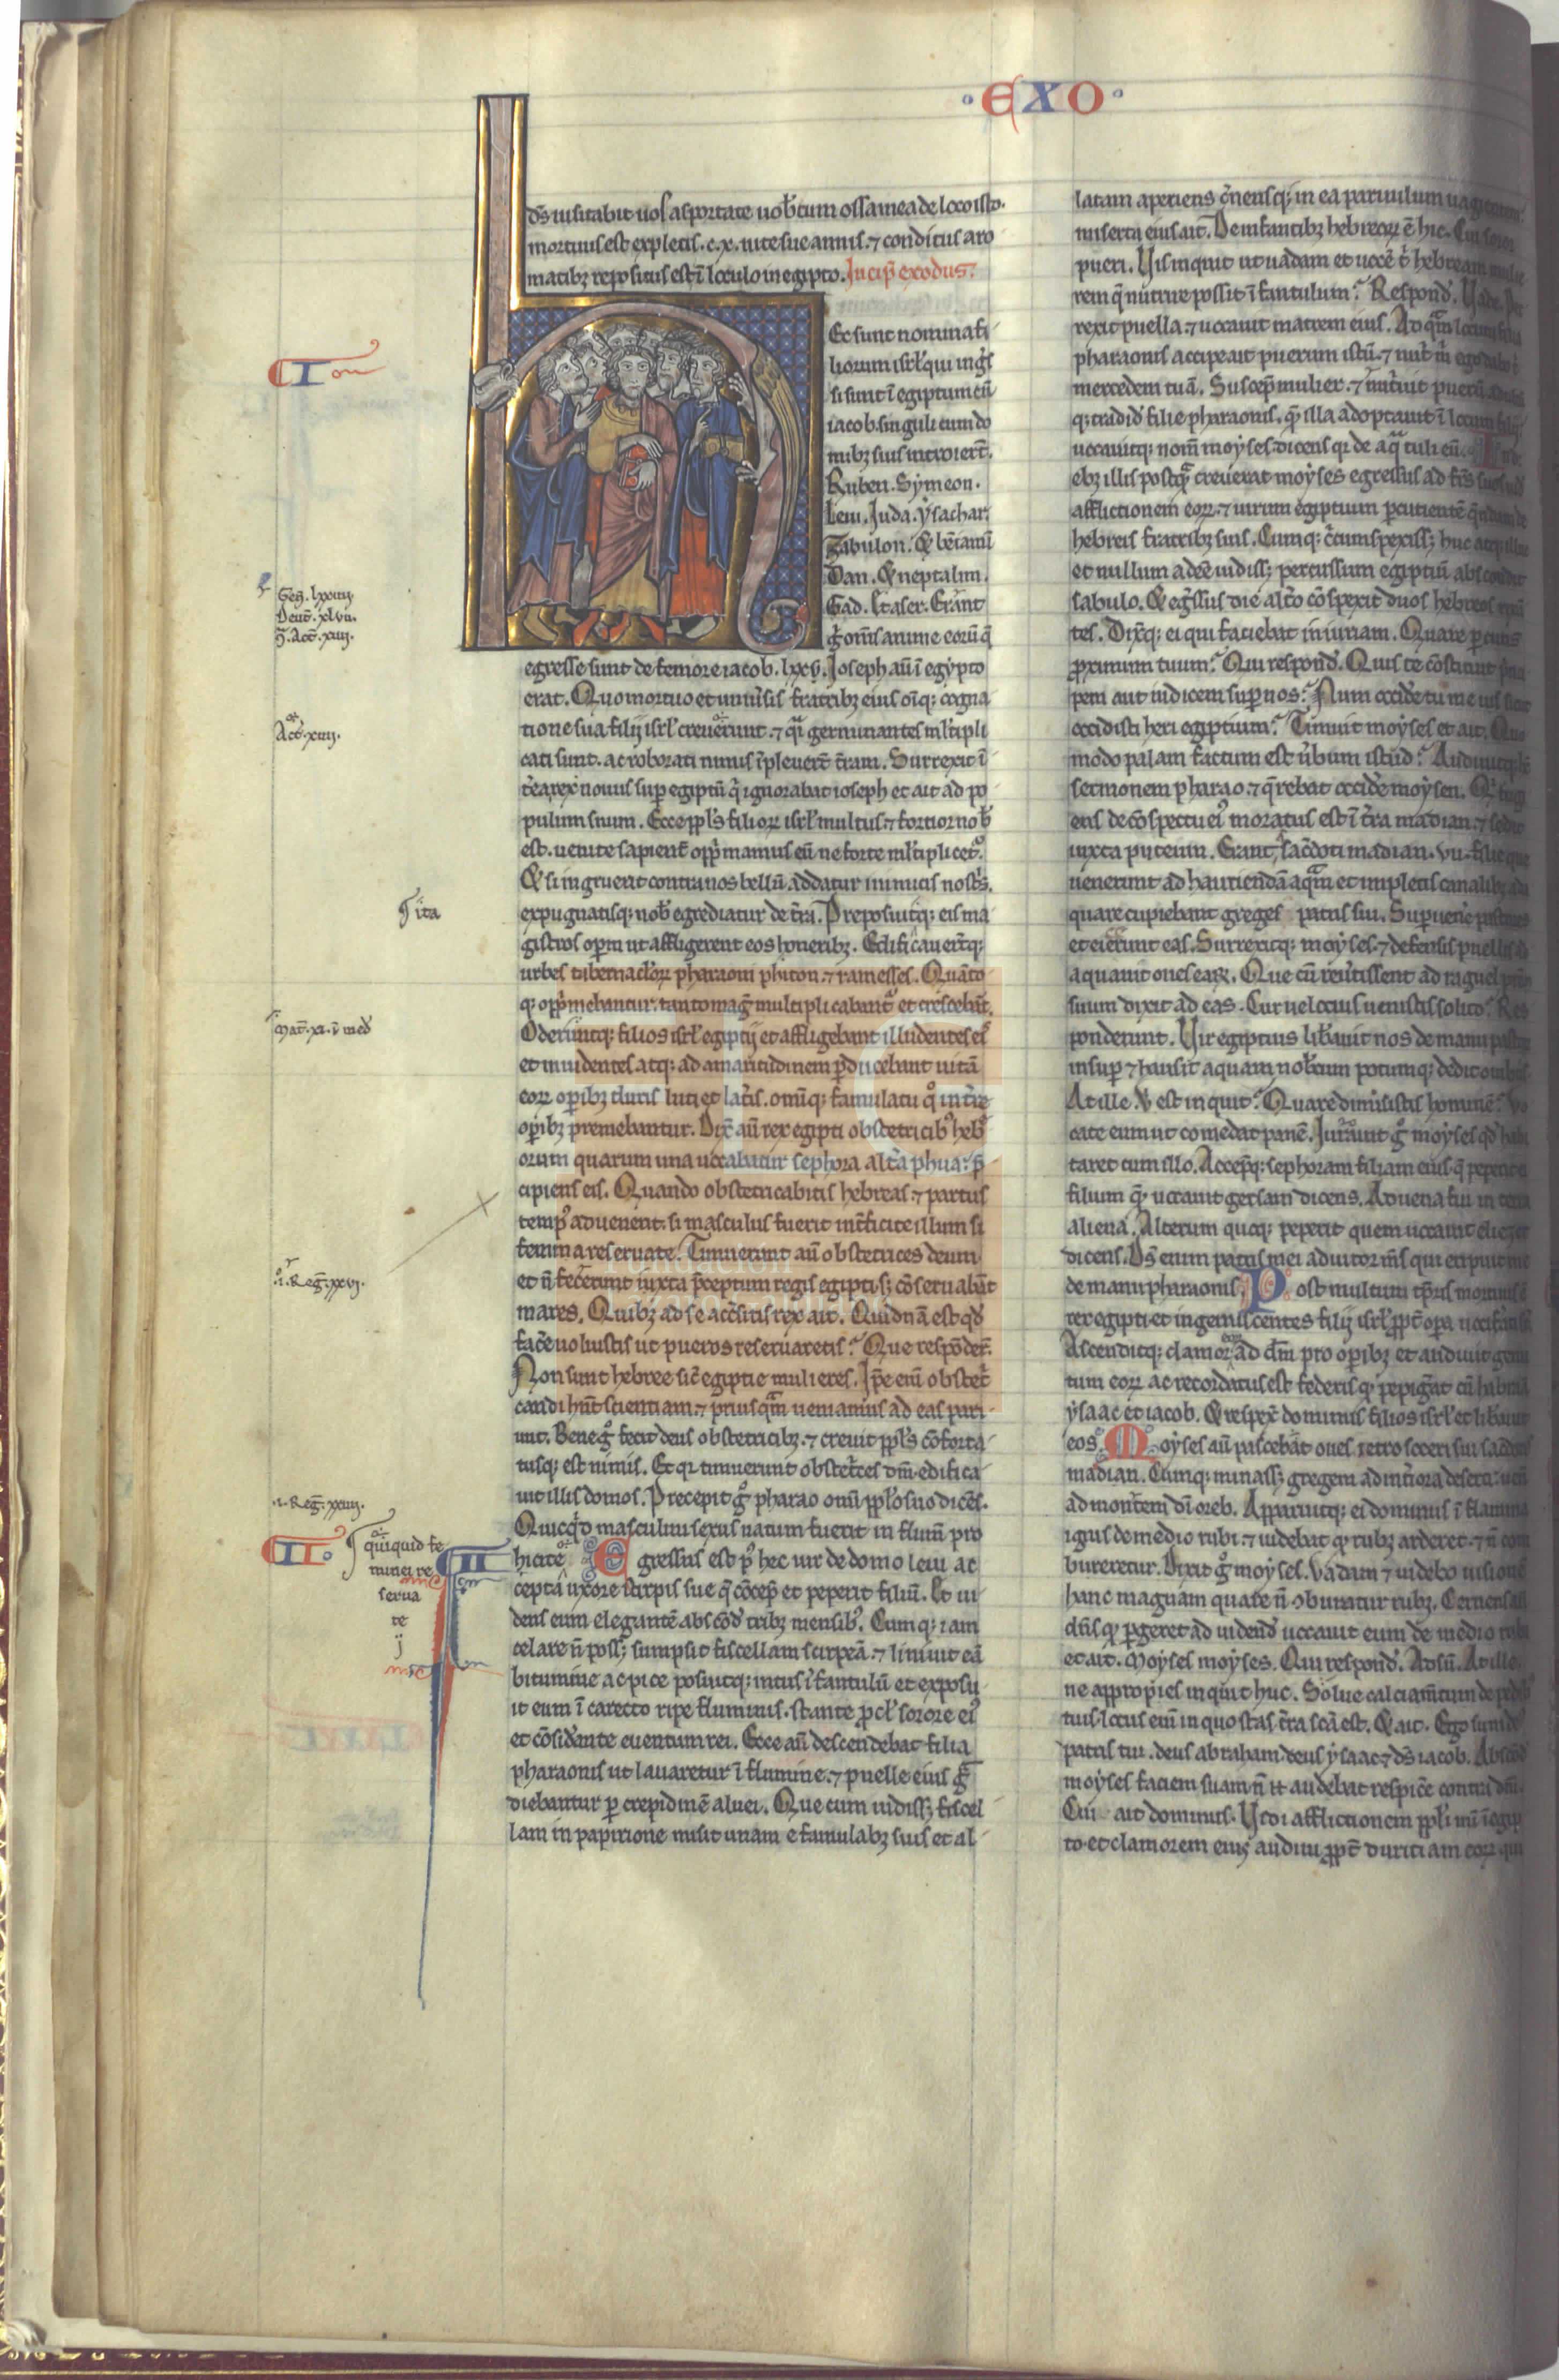 EXO
ds uisitabit uos asportate uobcum ossa mea de loco isto.
mortuus est expletis .c.x. uite sue annis. ⁊ conditus aro
matibꝫ repositus est ī loculo in egipto. Incip̄ exodus.
Ec sunt nomina fi
liorum isrl' qui ing̃s
si sunt ī egiptum cū
iacob. singuli cum do
mibꝫ suis introierт̄.
Ruben. Symeon.
Leui. Iuda. ẏsachar.
Zabulon. & beniamī
Dan. & neptalim.
Gad. & aser. Erant
g̊ om̄s anime eorū q̄
egresse sunt de femore iacob. lxxv. Ioseph aū ī egẏpto
erat. Quo mortuo et uniu'sis fratribꝫ eius oīqꝫ cogna
tione sua filij isrl' creuerunt. ⁊ qᵃi germinantes ml'tipli
cati sunt. ac roborati nimis īpleuerт̄ t̄ram. Surrexit ī
t̄ea rex nouus sup egiptū q' ignorabat ioseph et ait ad po
pulum suum. Ecce ppl's filioꝝ isrl' multus ⁊ fortior nob'
est. uenite sapient' opp'mamus eū ne forte ml'tiplicet'.
& si ingruerit contra nos bellū addatur inimicis nost's.
expugnatisqꝫ nob' egrediatur de t̄ra. Preposuitqꝫ eis ma
gistros opum ut affligerent eos honeribꝫ. Edificauer̄tqꝫ
urbes tabernacl'oꝝ pharaoni phiton. ⁊ ramesses. Quāto
qꝫ opp'mebantur. tanto mag̃ multiplicabant' et crescebāt.
Oderuntqꝫ filios isrl' egiptij et affligebant illudentes eis
et inuidentes atqꝫ ad amaritudinem pducebant uitā
eoꝝ opibꝫ duris luti et lat'is. omīqꝫ famulatu q̊ in t're
opibꝫ premebantur. Dix̄ aū rex egipti obstetricibꝰ heb'
orum quarum una uocabatur sephora alt'a phua: p̄
cipiens eis. Quando obstetricabitis hebreas. ⁊ partus
tempꝰ aduenerit. si masculus fuerit int'ficite illum si
femina reseruate. Timuerunt aū obstetrices deum
et ñ fecerunt iuxta p̄ceptum regis egipti. sꝫ cōseruabāt
mares. Quibꝫ ad se acc'sitis rex ait. Quidnā est qd'
fac'e uoluistis ut pueros reseruaretis? Que respōder̄.
Non sunt hebree sic̄ egiptie mulieres. Ip̄e enī obstet'
candi hn̄t scientiam. ⁊ priusq̄m ueniamus ad eas pari
unt. Bene g̊ fecit deus obstetricibꝫ. ⁊ creuit ppl's cōforta
tusqꝫ est nimis. Et qꝛ timuerunt obstet'ces dm̄. edifica
uit illis domos. Precepit g̊ pharao omī ppl'o suo dicēs.
Quicq'd masculini sexus natum fuerit in flum̄ pro
hicite. Egressus est pꝰ hec uir de domo leui ac
cepta uxore stirpis sue q̄ cōcep̄ et peperit filiū. Et ui
dens eum elegantē abscōd' tribꝫ mensibꝰ. Cumqꝫ iam
celare ñ possꝫ sumpsit fiscellam scirpeā. ⁊ liniuit eā
bitumine ac pice posuitqꝫ intus īfantulū et exposu
it eum ī carecto ripe fluminis. stante pcl' sorore eiꝰ
et cōsid'ante euentum rei. Ecce aū descendebat filia
pharaonis ut lauaretur ī flumine. ⁊ puelle eius g̃
diebantur p crepidinē aluei. Que cum uidissꝫ fiscel
lam in papirione misit unam e famulabꝫ suis et al
latam aperiens c'nensqꝫ in ea paruulum
miserta eius ait. De infantibꝫ hebreoꝝ ē hic. Cui soror
pueri. Uis inquit ut uadam et uocē t' hebream
rem q̄ nutrire possit īfantulum? Respond'. Uade.
rexit puella. ⁊ uocauit matrem eius. Ad q̄m locuta
pharaonis accipe ait puerum istū. ⁊ nut' m' ego dabo t'
mercedem tuā. Suscep̄ mulier. ⁊ nut'uit puerū
qꝫ tradid' filie pharaonis. qͣ illa adoptauit ī locum filij
uocauitqꝫ nom̄ moẏses dicens qꝛ de aqͣ tuli eū. In di
ebꝫ illis postqͣ creuerat moẏses egressus ad fr̄s suos
afflictionem eoꝝ. ⁊ uirum egiptium pcutientē
hebreis fratribꝫ suis. Cumqꝫ c'cumspexissꝫ huc atqꝫ illuc
et nullum adeē uidissꝫ percussum egiptiū abscondit
sabulo. & eg̃ssus die alt'o cōspexit duos hebreos
tes. Dixqꝫ ei qui faciebat iniuriam. Quare pcutis
proximum tuum? Qui respond'. Quis te cōstituit
pem aut iudicem sup nos? Num occid'e tu me uis sicut
occidisti heri egiptium? Timuit moẏses et ait. Quo
modo palam factum est u'bum istud? Audiuitqꝫ
sermonem pharao. ⁊ q̄rebat occid'e moẏsen. Qi
ens de cōspectu eiꝰ moratus est ī t'ra madian. ⁊ sedit
iuxta puteum. Erant sac'doti madian. vii. filie que
uenerunt ad hauriendā aq̄m et impletis canalibꝫ
quare cupiebant greges patris sui. Superuen'e pastores
et eiecerunt eas. Surrexitqꝫ moẏses. ⁊ defensis puellis
aquauit oues eaꝝ. Que cū reu'tissent ad raguel
suum dixit ad eas. Cur uelocius uenistis solito? Res
ponderunt. Uir egiptius lib'auit nos de manu
insup ⁊ hausit aquam nob'cum potumqꝫ dedit
At ille. U' est inquit? Quare dimisistis hominē?
cate eum ut comedat panē. Iurauit g̊ moẏses qd'
taret cum illo. Accepqꝫ sephoram filiam eius q̄ peperit
filium qͣ uocauit gersam dicens. Aduena fui in terra
aliena. Alterum quoqꝫ peperit quem uocauit
dicens. Ds enim patris mei adiutor m's qui eripuit me
de manu pharaonis. Post multum tp̄ris mortuus ē
rex egipti. et ingemiscentes filij isrl' ppt' opa
Ascenditqꝫ clamor ad dm̄ pro opibꝫ et audiuit gemi
tum eoꝝ ac recordatus est federis qͣ pepigᵃt cū
ẏsaac et iacob. & respex̄ dominus filios isrl' et lib'auit
eos. Moẏses aū pascebat oues ietro soceri sui
madian. Cumqꝫ minassꝫ gregem ad int'iora deserti.
ad montem di oreb. Apparuitqꝫ ei dominus ī flamma
ignis de medio rubi. ⁊ uidebat qͣ rubꝫ arderet. ⁊ ñ com
bureretur. Dixit g̊ moẏses. Vadam ⁊ uidebo uisionē
hanc magnam quare ñ oburatur rubꝫ. Cernens aū
dn̄s qͣ pgeret ad uidend' uocauit eum de medio rubi
et ait. Moẏses moẏses. Qui respond'. Adsū. At ille.
ne appropies inquit huc. Solue calciam̄tum de pedibꝰ
tuis. locus enī in quo stas t̄ra sc̄a est. & ait. Ego sum
patris tui. deus abraham. deus ẏsaac. ⁊ ds iacob.
moẏses faciem suam ñ audebat respic'e contra dm̄.
Cui ait dominus. Uidi afflictionem ppl'i mī ī egip
to. et clamorem eius audiui ppt' duritiam eoꝝ qui
I
Deut. xlvii.
Act. xiiii.
ita
Mat. xi
i. Reg. xxvi.
i. Reg. xxiii.
II
quiquid fe
minei re
serua
te